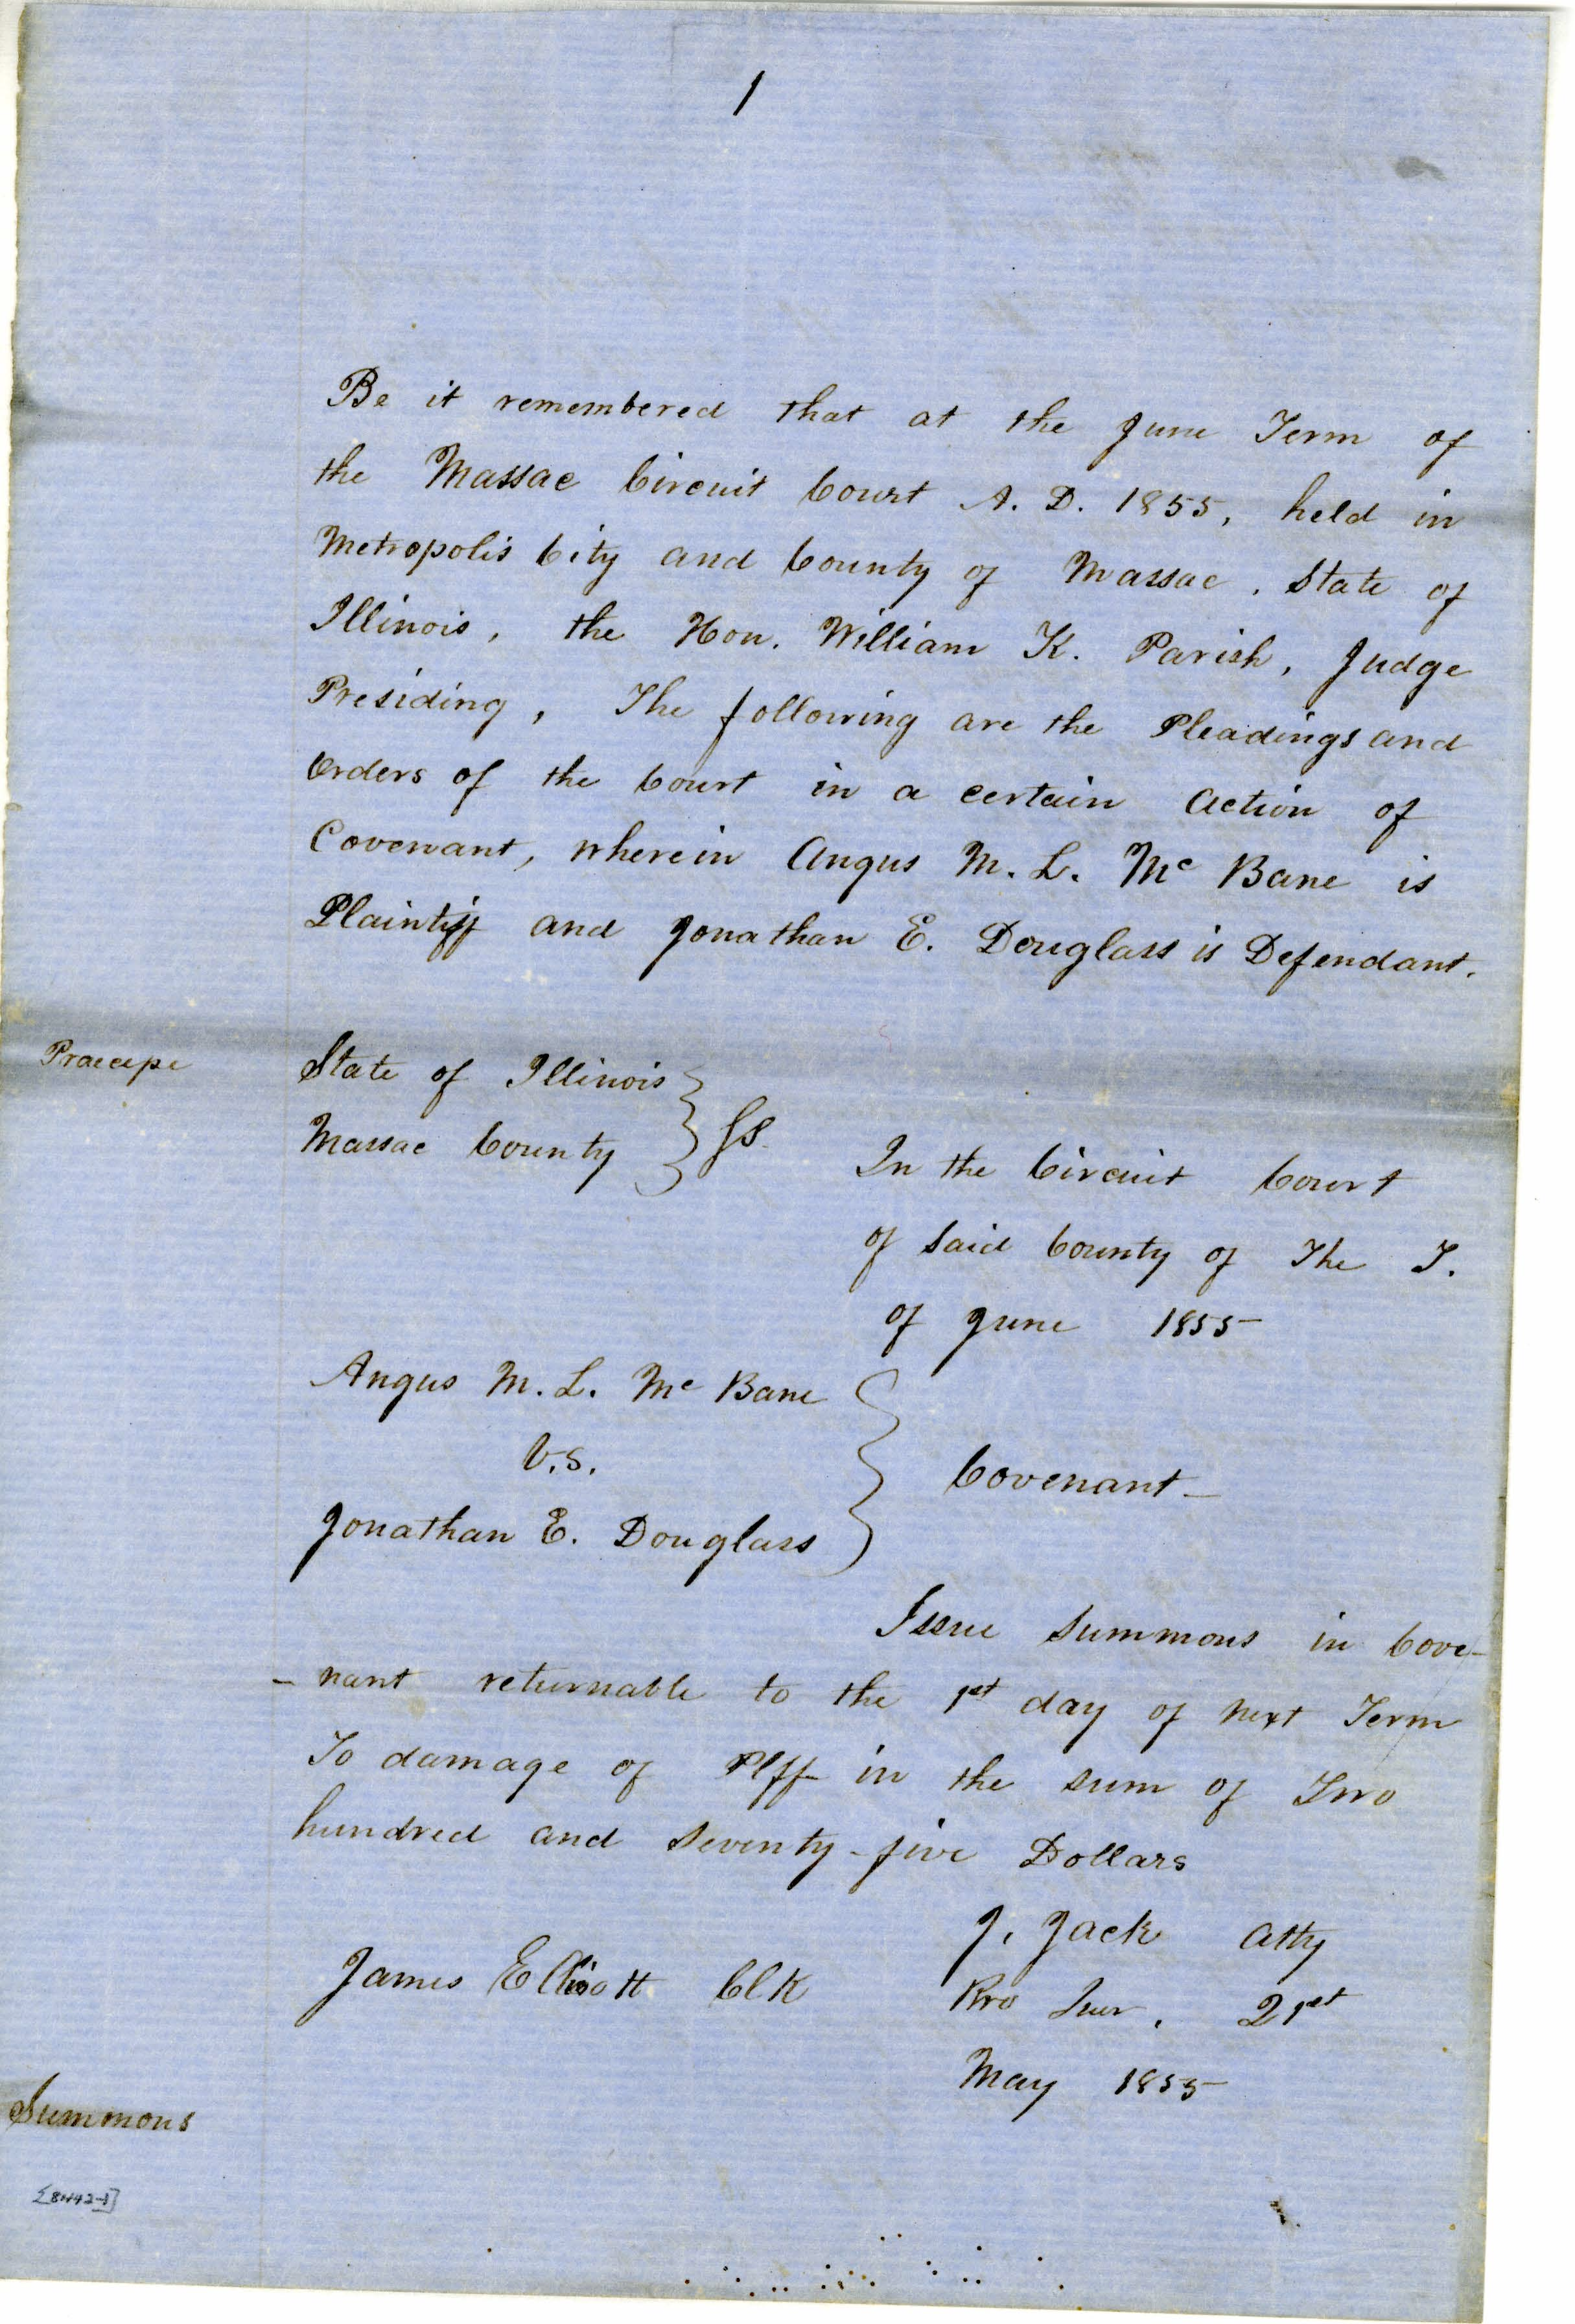 1
Be it remembered that at the June Term of
the Massac Circuit Court A. D. 1855, held in
Metropolis City and County of Massac, State of
Illinois, the Hon. William K. Parish, Judge
Presiding, The following are the Pleadings and
Orders of the Court in a certain Action of
Covenant, wherein Angus M. L. Mc Bane is
Plaintiff and Jonathan E. Douglass is Defendant.
Praecipe
State of Illinois
Massac County } ss.
In the Circuit Court
of Said County of The T.
of June 1855
Angus M. L. Mc Bane
V.S.
Jonathan E. Douglass
} Covenant—
Issue Summons in Cove-
- nant returnable to the 1st day of next Term
To damage of Plff in the sum of Two
hundred and Seventy-five Dollars
J. Jack Atty
James Elliott Clk
Pro 21st
May 1855
Summons
[8442-1]